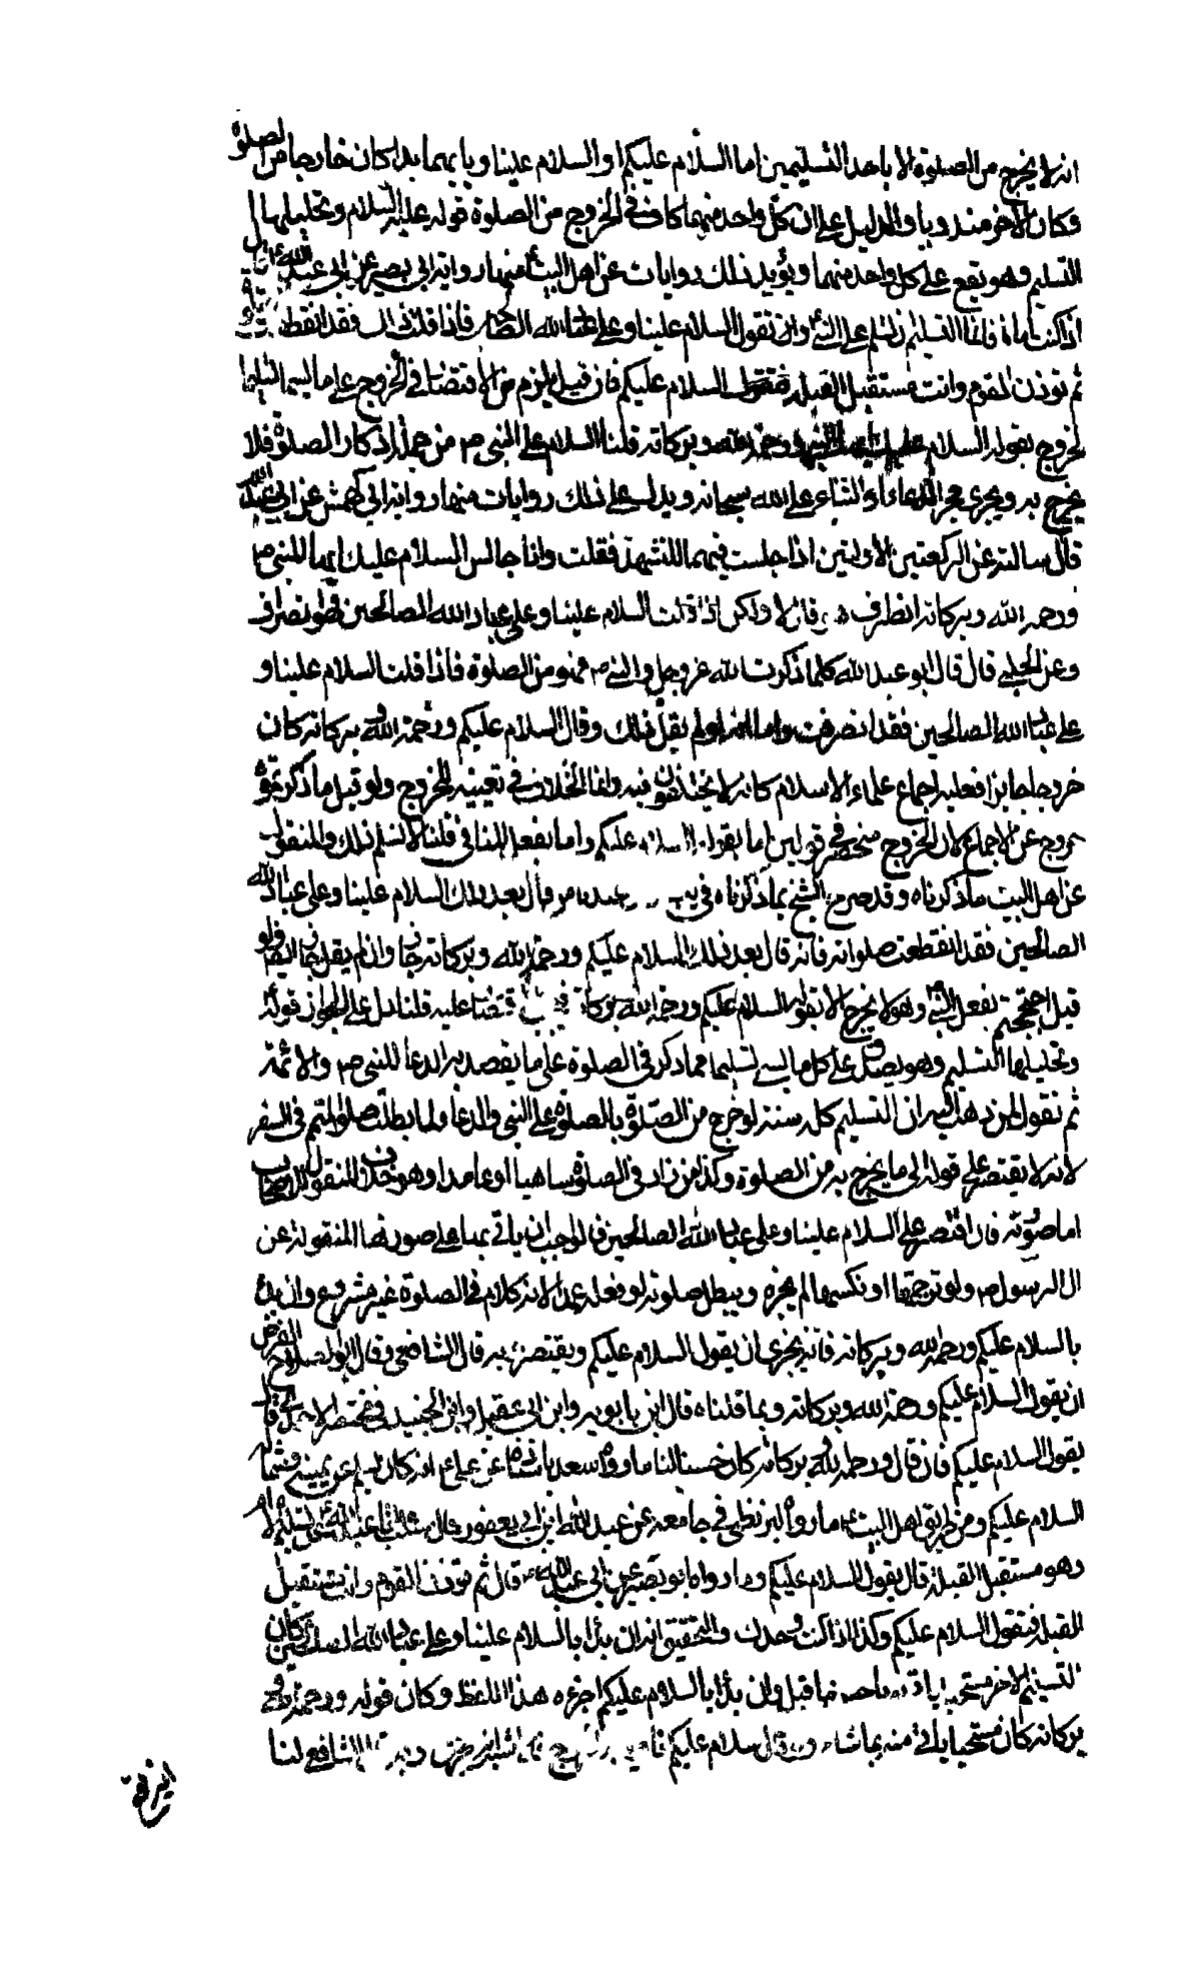 انه لا يخرج من الصلوة الا باحد التسليمين اما السلام عليكم او السلام علينا وبايهما بدا كان خارجا من الصلوة
وكان الاخر مندوبا والدليل على ان كل واحد منهما كاف في الخروج من الصلوة قوله عليه السلام وتحليلها
التسليم وهو يقع على كل واحد منهما ويؤيد ذلك روايات عن اهل البيت منها رواية ابى بصير عن ابى عبد الله
اذا كنت اماما فانما التسليم ان تسلم على النبي وان تقول السلام علينا وعلى عباد الله الصالحين فاذا قلت ذلك فقد انقطعت
ثم توذن القوم وانت مستقبل القبلة فتقول السلام عليكم فان قيل يلزم من الاقتصار في الخروج على ما يسمى تسليما
لخروج بقوله السلام عليك ايها النبي ورحمة الله وبركاته قلنا السلام على النبي ص من جملة اذكار الصلوة فلا
يخرج به ويجرى مجرى الدعاء والثناء على الله سبحانه ويدل على ذلك روايات منها رواية ابى كهمش عن ابى عبد الله
قال سالته عن الركعتين الاولتين اذا جلست فيهما للتشهد فقلت وانا جالس السلام عليك ايها النبي ص
ورحمة الله وبركاته انصراف هو قال لا ولكن اذا قلت السلام علينا وعلى عباد الله الصالحين فهو انصراف
وعن الحلبي قال قال ابو عبد الله كلما ذكرت الله عز وجل والنبي ص فهو من الصلوة فاذا قلت السلام علينا و
على عباد الله الصالحين فقد انصرفت واما انه لو لم يقل ذلك وقال السلام عليكم ورحمة الله وبركاته كان
خروجا جايزا فعليه اجماع علماء الاسلام كانه لا يختلفون فيه وانما الخلاف في تعيينه للخروج ولو قيل ما ذكرتموه
خروج عن الاجماع لان الخروج منحصر في قولين اما بقوله السلام عليكم واما بفعل المنافى قلنا لا نسلم ذلك والمنقول
عن اهل البيت ما ذكرناه وقد صرح الشيخ بما ذكرناه في من قال بعد ذلك السلام علينا وعلى عباد الله
الصالحين فقد انقطعت صلواته فانه قال بعد ذلك السلام عليكم ورحمة الله وبركاته جاز وان لم يقل جاز ايضا ولو
قيل احتججتم بفعل النبي وهو لا يخرج الا بقوله السلام عليكم ورحمة الله وبركاته اقتصارا عليه قلنا دل على الجواز قوله
وتحليلها التسليم وهو يصدق على كل ما يسمى تسليما مما ذكر في الصلوة على ما يقصد به الدعا للنبي ص والائمة
ثم نقول لمن ذهب الى ان التسليم كله سنة لو خرج من الصلوة بالصلوة على النبي والدعا ولما بطلت صلوة المتم في السفر
لانه لا يقتصر على قوله الى ما يخرج به من الصلوة وكذا من زاد في الصلوة ساهيا او عامدا وهو خلاف المنقول
اما صورته فان اقتصر على السلام علينا وعلى عباد الله الصالحين فالواجب ان ياتى بها على صورتها المنقولة عن
ال الرسول ص ولو ترجمها او نكسها لم يجزه ويبطل صلوته لو فعله عمدا لانه كلام في الصلوة غير مشروع وان بدا
بالسلام عليكم ورحمة الله وبركاته فانه يجزى ان يقول السلام عليكم ويقتصر به قال الشافعي وقال ابو الصلاح الفرض
ان يقول السلام عليكم ورحمة الله وبركاته وبما قلناه قال ابن بابويه وابن ابى عقيل وابن الجنيد في مختصر الاحمدى قال
يقول السلام عليكم فان قال ورحمة الله وبركاته كان حسنا لنا ما رواه سعد باسناده عن على ع انه كان يسلم عن يمينه وشماله
السلام عليكم ومن طريق اهل البيت ما رواه البزنطي في جامعه عن عبد الله ابن ابى يعفور قال سئلت ابا عبد الله عن تسليم الامام
وهو مستقبل القبلة قال يقول السلام عليكم وما رواه ابو بصير عن ابى عبد الله قال ثم توذن القوم وانت مستقبل
القبلة فتقول السلام عليكم وكذا اذا كنت وحدك والتحقيق انه ان بدا بالسلام علينا وعلى عباد الله الصالحين كان
التسليم الاخر مستحبا ياتى باحسنها قبل وان بدا بالسلام عليكم اجزءه هذا اللفظ وكان قوله ورحمة الله و
بركاته كان مستحبا ياتى منه بما شاء ولو قال سلام عليكم وبه قال الشافعي لنا